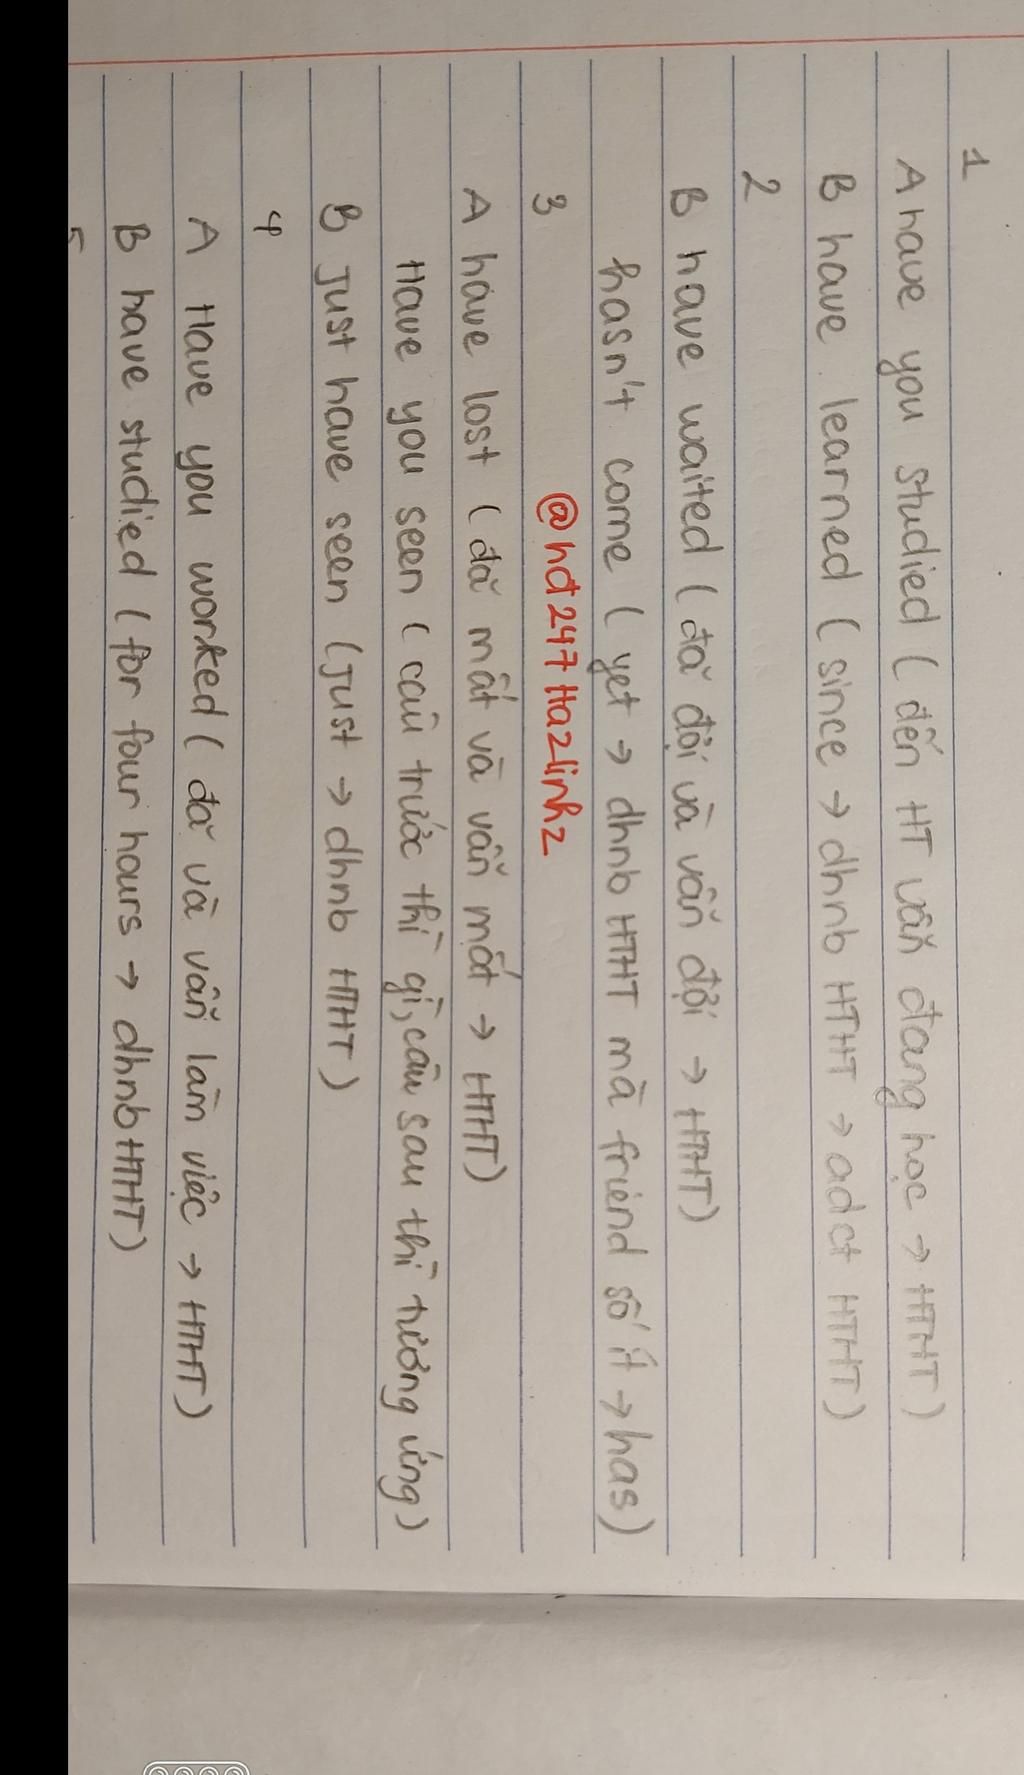 1
A have you studied (đến HT vẫn đang học → HTHT)
B have learned (since → dhnb HTHT → adct HTHT)
2
B have waited (đã đợi và vẫn đợi → HTHT)
hasn't come (yet → dhnb HTHT mà friend số ít → has)
3
@hd247Hazlinhz
A have lost (đã mất và vẫn mất → HTHT)
Have you seen (câu trước thì gì, câu sau thì tương ứng)
B Just have seen (Just → dhnb HTHT)
4
A Have you worked (đã và vẫn làm việc → HTHT)
B have studied (for four hours → dhnb HTHT)
5